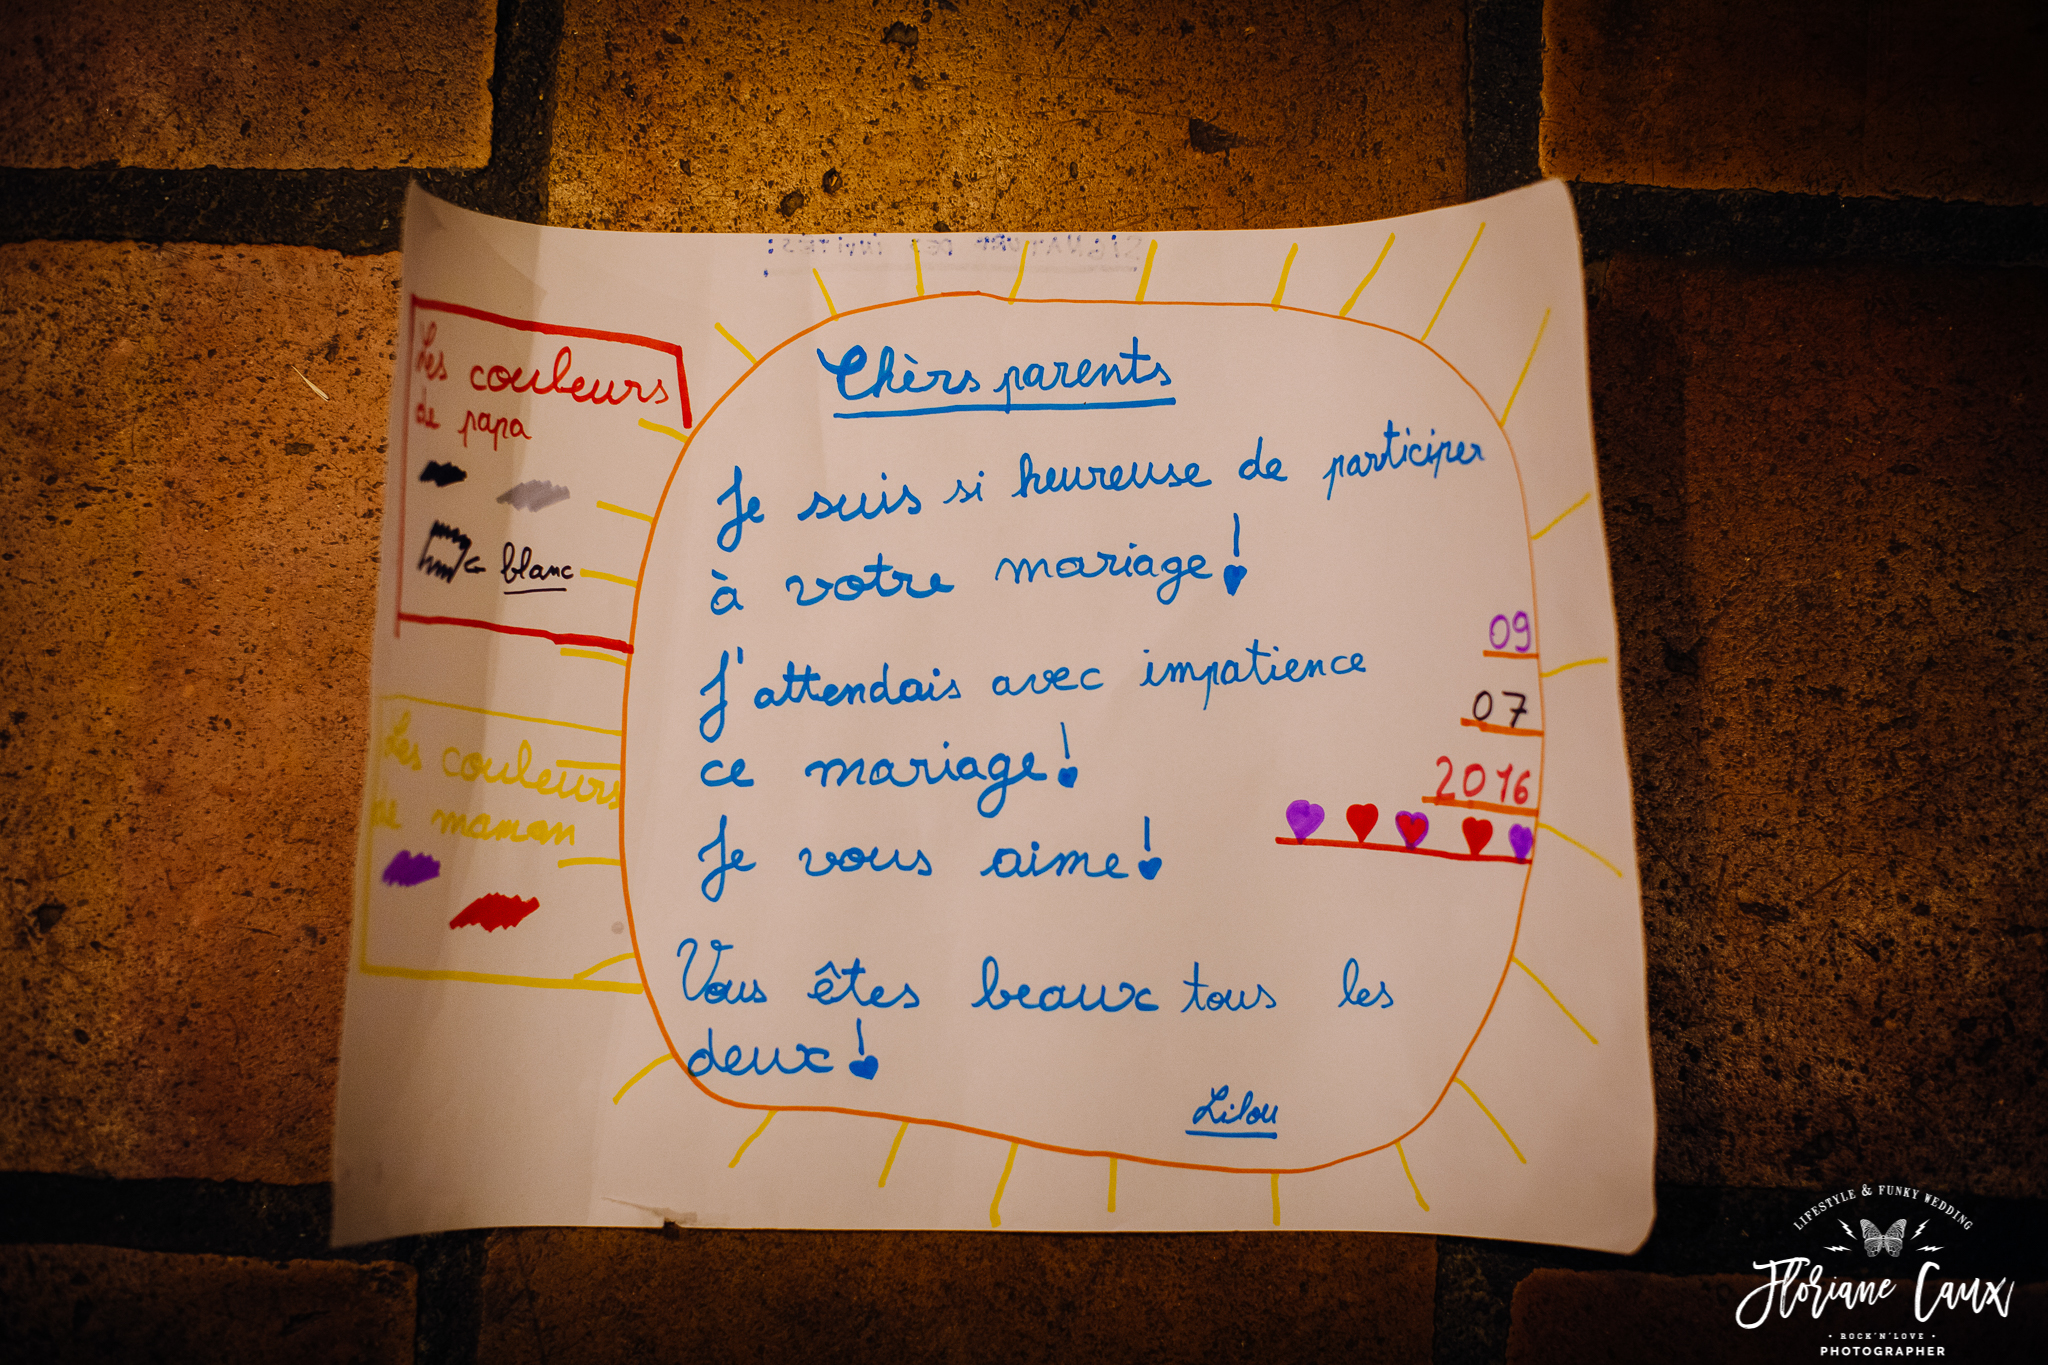 SIGNATURE DES INVITÉS:
Les couleurs
de papa
blanc
Les couleurs
de maman
Chèrs parents
Je suis si heureuse de participer
à votre mariage!
J'attendais avec impatience
ce mariage!
Je vous aime!
Vous êtes beaux tous les
deux!
Lilou
09
07
2016
LIFESTYLE & FUNKY WEDDING
Floriane Caux
• ROCK'N'LOVE •
PHOTOGRAPHER